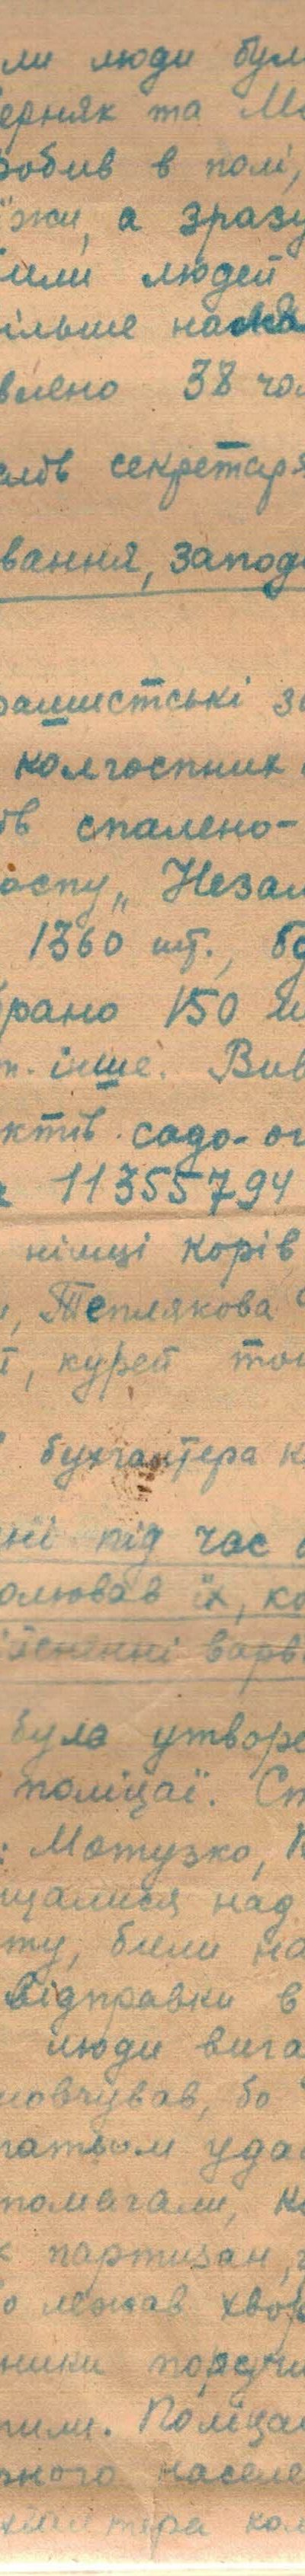 ли люди бул
ерняк та Мо
робив в полі,
їжи, а зразу
били людей
ільше нама
влено 38 чол
слів секретаря
вання, запод
рашистські з
колгоспник
ів спалено-
оспу „Незам
1360 шт., бд
брано 150 ш
т. інше. Вив
ктів садо-ог
11355794
німці корів,
, Теплякова
і, курей тощ
бухгалтера к
ні під час
олював їх, ко
ійсненні варв
була утворе
поліцаї. Ст
: Мотузко, К
щалися над
ту, били на
відправки в
люди вига
мовчував, бо
гатьом удал
помагали, ко
к партизан,
о лежав хвор
ники поручи
или. Поліцаї
ного населе
хгалтера кол